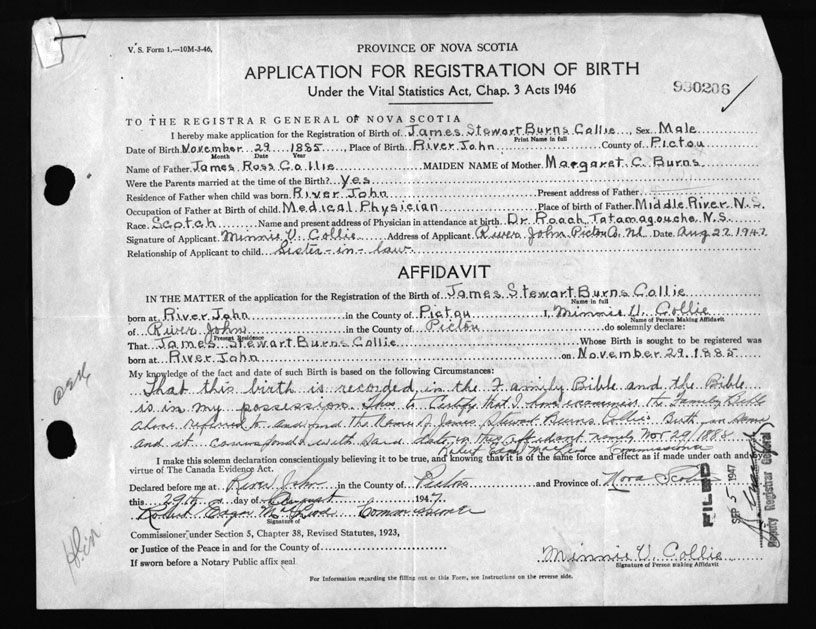 V. S. Form 1.—10M-3-46.
PROVINCE OF NOVA SCOTIA
APPLICATION FOR REGISTRATION OF BIRTH
Under the Vital Statistics Act, Chap. 3 Acts 1946
990206
TO THE REGISTRAR GENERAL OF NOVA SCOTIA
I hereby make application for the Registration of Birth of James Stewart Burns Collie, Sex Male
Print Name in full
Date of Birth November 29 1885, Place of Birth River John County of Pictou
Month Date Year
Name of Father James Ross Collie MAIDEN NAME of Mother Margaret C. Burns
Were the Parents married at the time of the Birth? Yes
Residence of Father when child was born River John Present address of Father
Occupation of Father at Birth of child Medical Physician Place of birth of Father Middle River N.S.
Race Scotch Name and present address of Physician in attendance at birth Dr. Roach Tatamagouche N.S.
Signature of Applicant Minnie V. Collie Address of Applicant River John Pictou Date Aug 27 1947
Relationship of Applicant to child Sister-in-law
AFFIDAVIT
IN THE MATTER of the application for the Registration of Birth of James Stewart Burns Collie
Name in full
born at River John in the County of Pictou I, Minnie V. Collie
Name of Person Making Affidavit
of River John in the County of Pictou do solemnly declare:
Present Residence
That James Stewart Burns Collie Whose Birth is sought to be registered was
born at River John on November 29, 1885
My knowledge of the fact and date of such Birth is based on the following Circumstances:
That this birth is recorded in the Family Bible and the Bible
is in my possession. This to Certify that I have examined the Family Bible
above referred to and find the Name of James Stewart Burns Collie's Birth on same
and it corresponds with said date in this affidavit namely Nov 29, 1885
Robert Edgar McLeod Commissioner
I make this solemn declaration conscientiously believing it to be true, and knowing that it is of the same force and effect as if made under oath and by
virtue of The Canada Evidence Act.
Declared before me at River John in the County of Pictou and Province of Nova Scotia
this 29th day of August 1947
Robert Edgar McLeod Commissioner
Signature of
Commissioner under Section 5, Chapter 38, Revised Statutes, 1923,
or Justice of the Peace in and for the County of
If sworn before a Notary Public affix seal
Minnie V. Collie
Signature of Person making Affidavit
For Information regarding the filling out of this Form, see Instructions on the reverse side.
FILED
SEP 5 1947
Deputy Registrar General